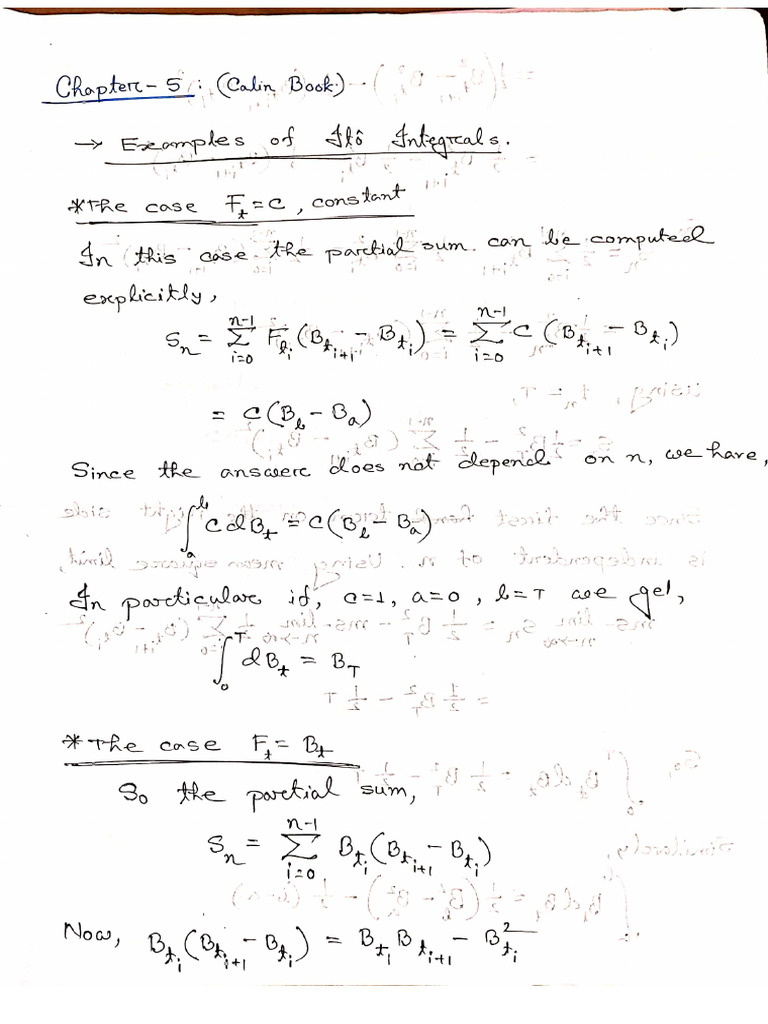 Chapter-5 : (Calin Book)
→ Examples of Itô Integrals.
*The case F_t = C, constant
In this case the partial sum can be computed
explicitly,
S_n = Σ_{i=0}^{n-1} F_{t_i} (B_{t_{i+1}} − B_{t_i}) = Σ_{i=0}^{n-1} C (B_{t_{i+1}} − B_{t_i})
= C(B_b − B_a)
Since the answer does not depend on n, we have,
∫_a^b C dB_t = C(B_b − B_a)
In particular if, C=1, a=0, b=T we get,
∫_0^T dB_t = B_T
*The case F_t = B_t
So the partial sum,
S_n = Σ_{i=0}^{n-1} B_{t_i} (B_{t_{i+1}} − B_{t_i})
Now, B_{t_i} (B_{t_{i+1}} − B_{t_i}) = B_{t_i} B_{t_{i+1}} − B_{t_i}^2